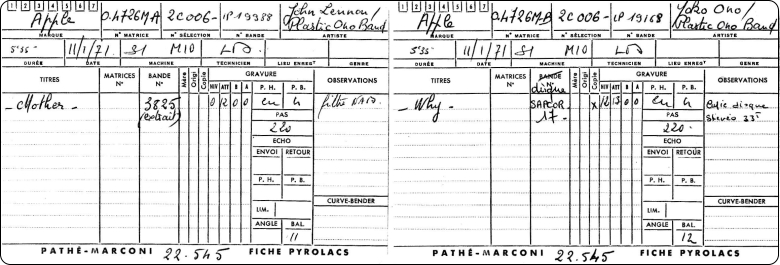 1 2 3 4 5 6 7
Apple
0.4726M-A
2C006-
IP 19388
John Lennon/
Plastic Ono Band
MARQUE
N° MATRICE
N° SÉLECTION
N° BANDE
ARTISTE
5'35"
11/1/71
S1
M10
DURÉE
DATE
MACHINE
TECHNICIEN
LIEU ENREGt
GENRE
TITRES
MATRICES N°
BANDE N°
Mère
Origi
Copie
GRAVURE
NIV ATT B A P. H. P. B.
OBSERVATIONS
- Mother -
3825
(extrait)
0 12 0 0
en
h
filtre
PAS
220
ECHO
ENVOI RETOUR
P. H. P. B.
LIM.
CURVE-BENDER
ANGLE BAL.
11
PATHÉ-MARCONI
22.545
FICHE PYROLACS
1 2 3 4 5 6 7
Apple
0.4726M-B
2C006-
IP 19168
Yoko Ono/
Plastic Ono Band
MARQUE
N° MATRICE
N° SÉLECTION
N° BANDE
ARTISTE
5'35"
11/1/71
S1
M10
DURÉE
DATE
MACHINE
TECHNICIEN
LIEU ENREGt
GENRE
TITRES
MATRICES N°
BANDE N°
disque
Mère
Origi
Copie
GRAVURE
NIV ATT B A P. H. P. B.
OBSERVATIONS
- Why -
SAPCOR
17-
X
0 0
en
h
disque
Stéréo 33t
PAS
220
ECHO
ENVOI RETOUR
P. H. P. B.
LIM.
CURVE-BENDER
ANGLE BAL.
12
PATHÉ-MARCONI
22.545
FICHE PYROLACS